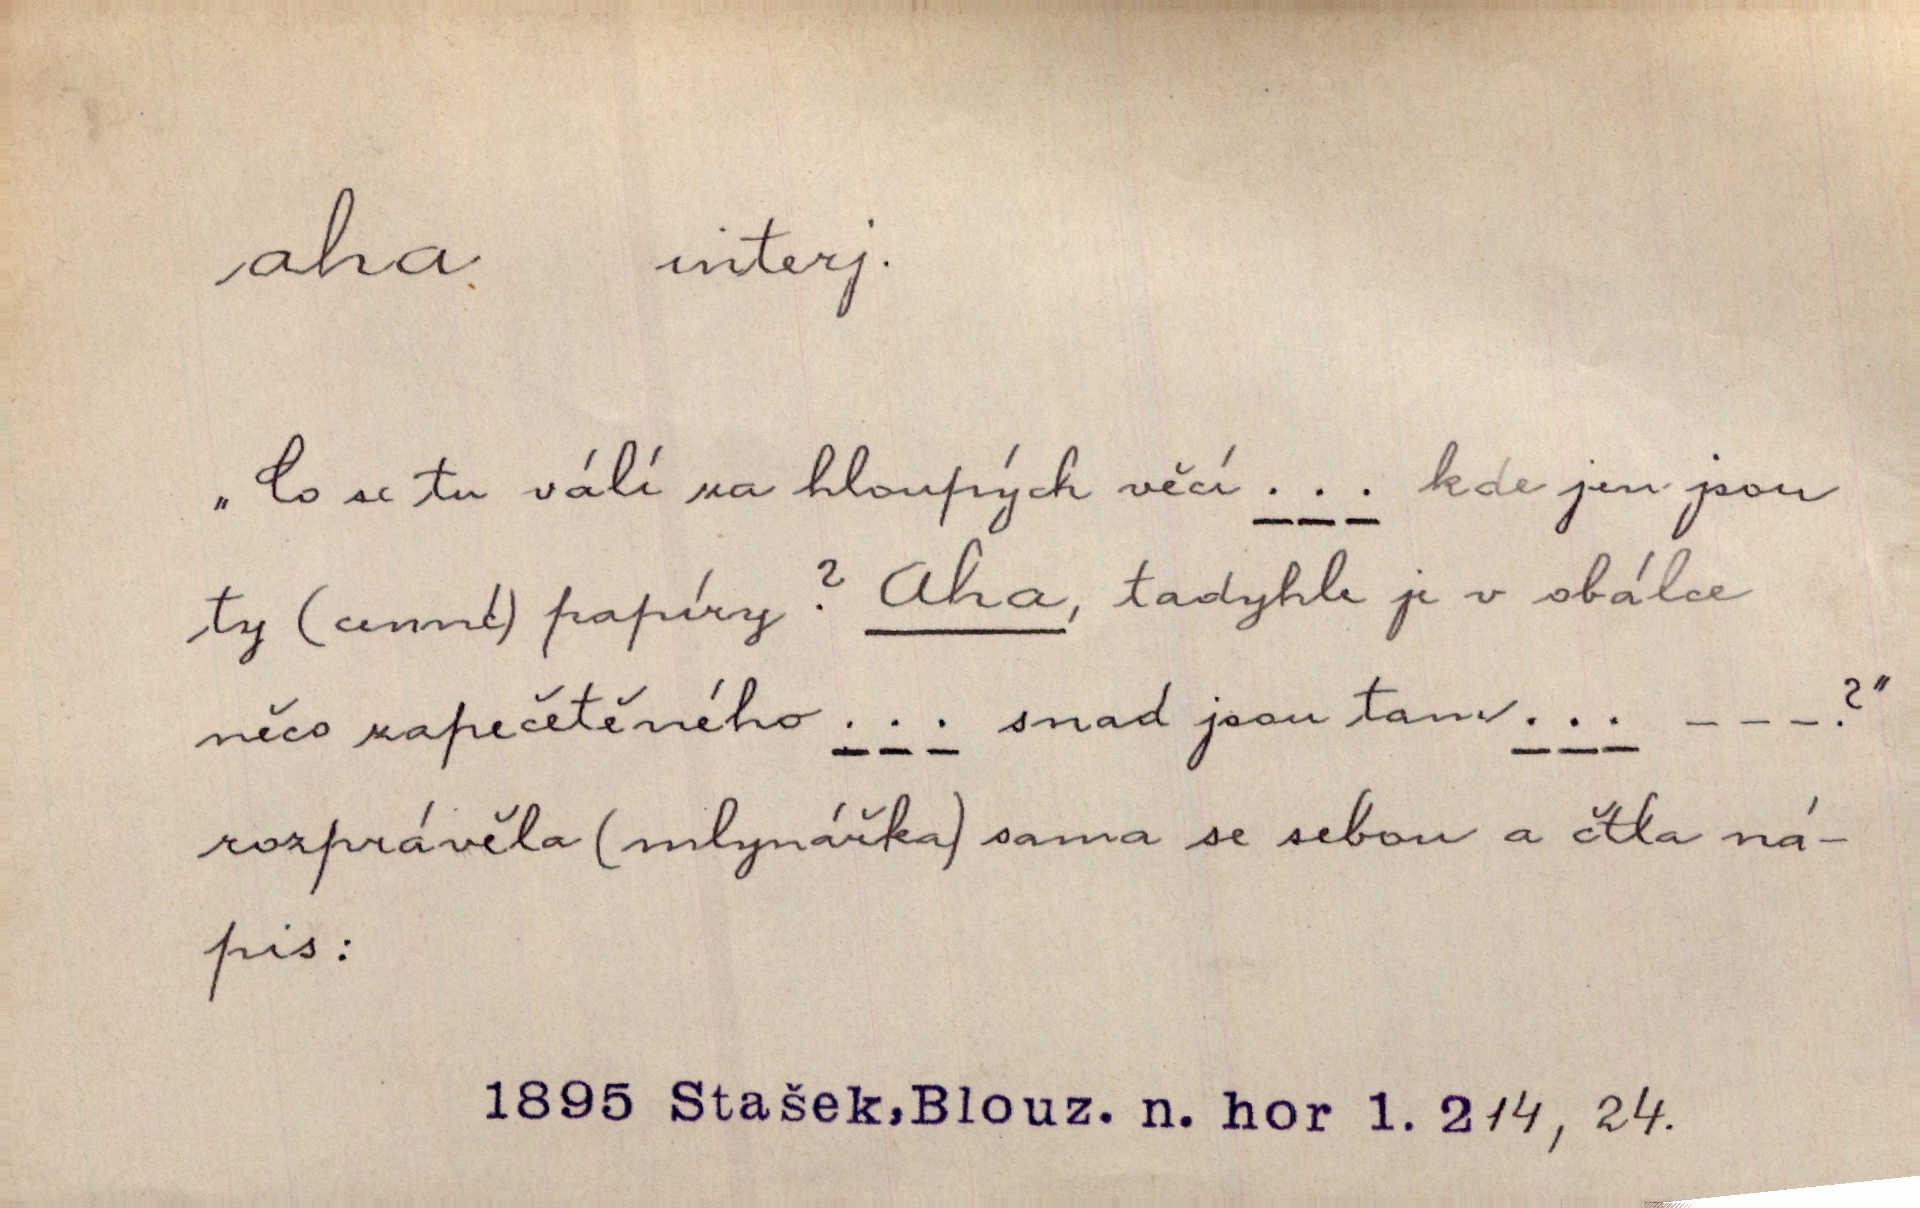 aha interj.
„Co se tu válí za hloupých věcí . . . kde jen jsou
ty (cenné) papíry? Aha, tadyhle je v obálce
něco zapečetěného . . . snad jsou tam . . . – – –?"
rozprávěla (mlynářka) sama se sebou a čtla ná-
pis:
1895 Stašek,Blouz. n. hor 1. 214, 24.